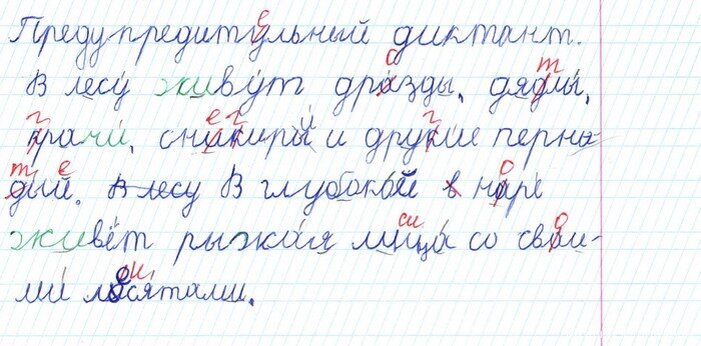 Предупредительный диктант.
В лесу живут дразды, дядлы,
крачи, сникиры и друкие перна-
дый. В лесу В глубокой в наре
живёт рыжкая лица со сваи-
ми лосятами.